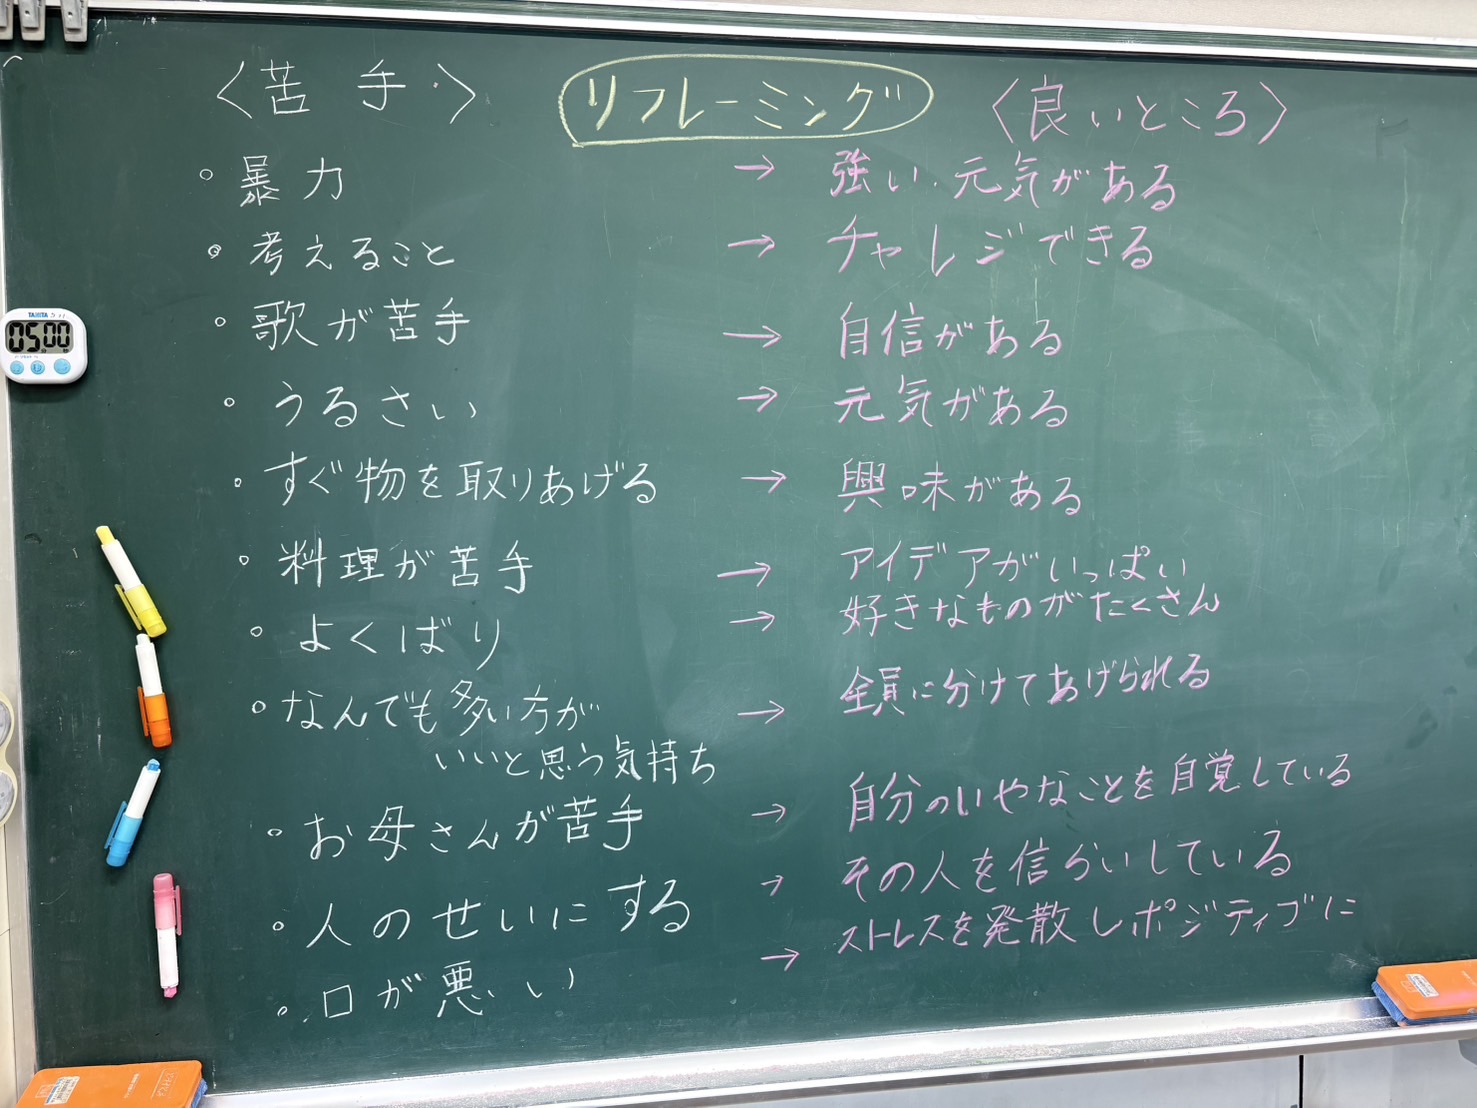 〈苦手〉 リフレーミング 〈良いところ〉
・暴力 → 強い、元気がある
・考えること → チャレンジできる
・歌が苦手 → 自信がある
・うるさい → 元気がある
・すぐ物を取りあげる → 興味がある
・料理が苦手 → アイデアがいっぱい
・よくばり → 好きなものがたくさん
・なんでも多い方が → 全員に分けてあげられる
いいと思う気持ち
・お母さんが苦手 → 自分のいやなことを自覚している
・人のせいにする → その人を信らいしている
・口が悪い → ストレスを発散しポジティブに
TANITA
05 00